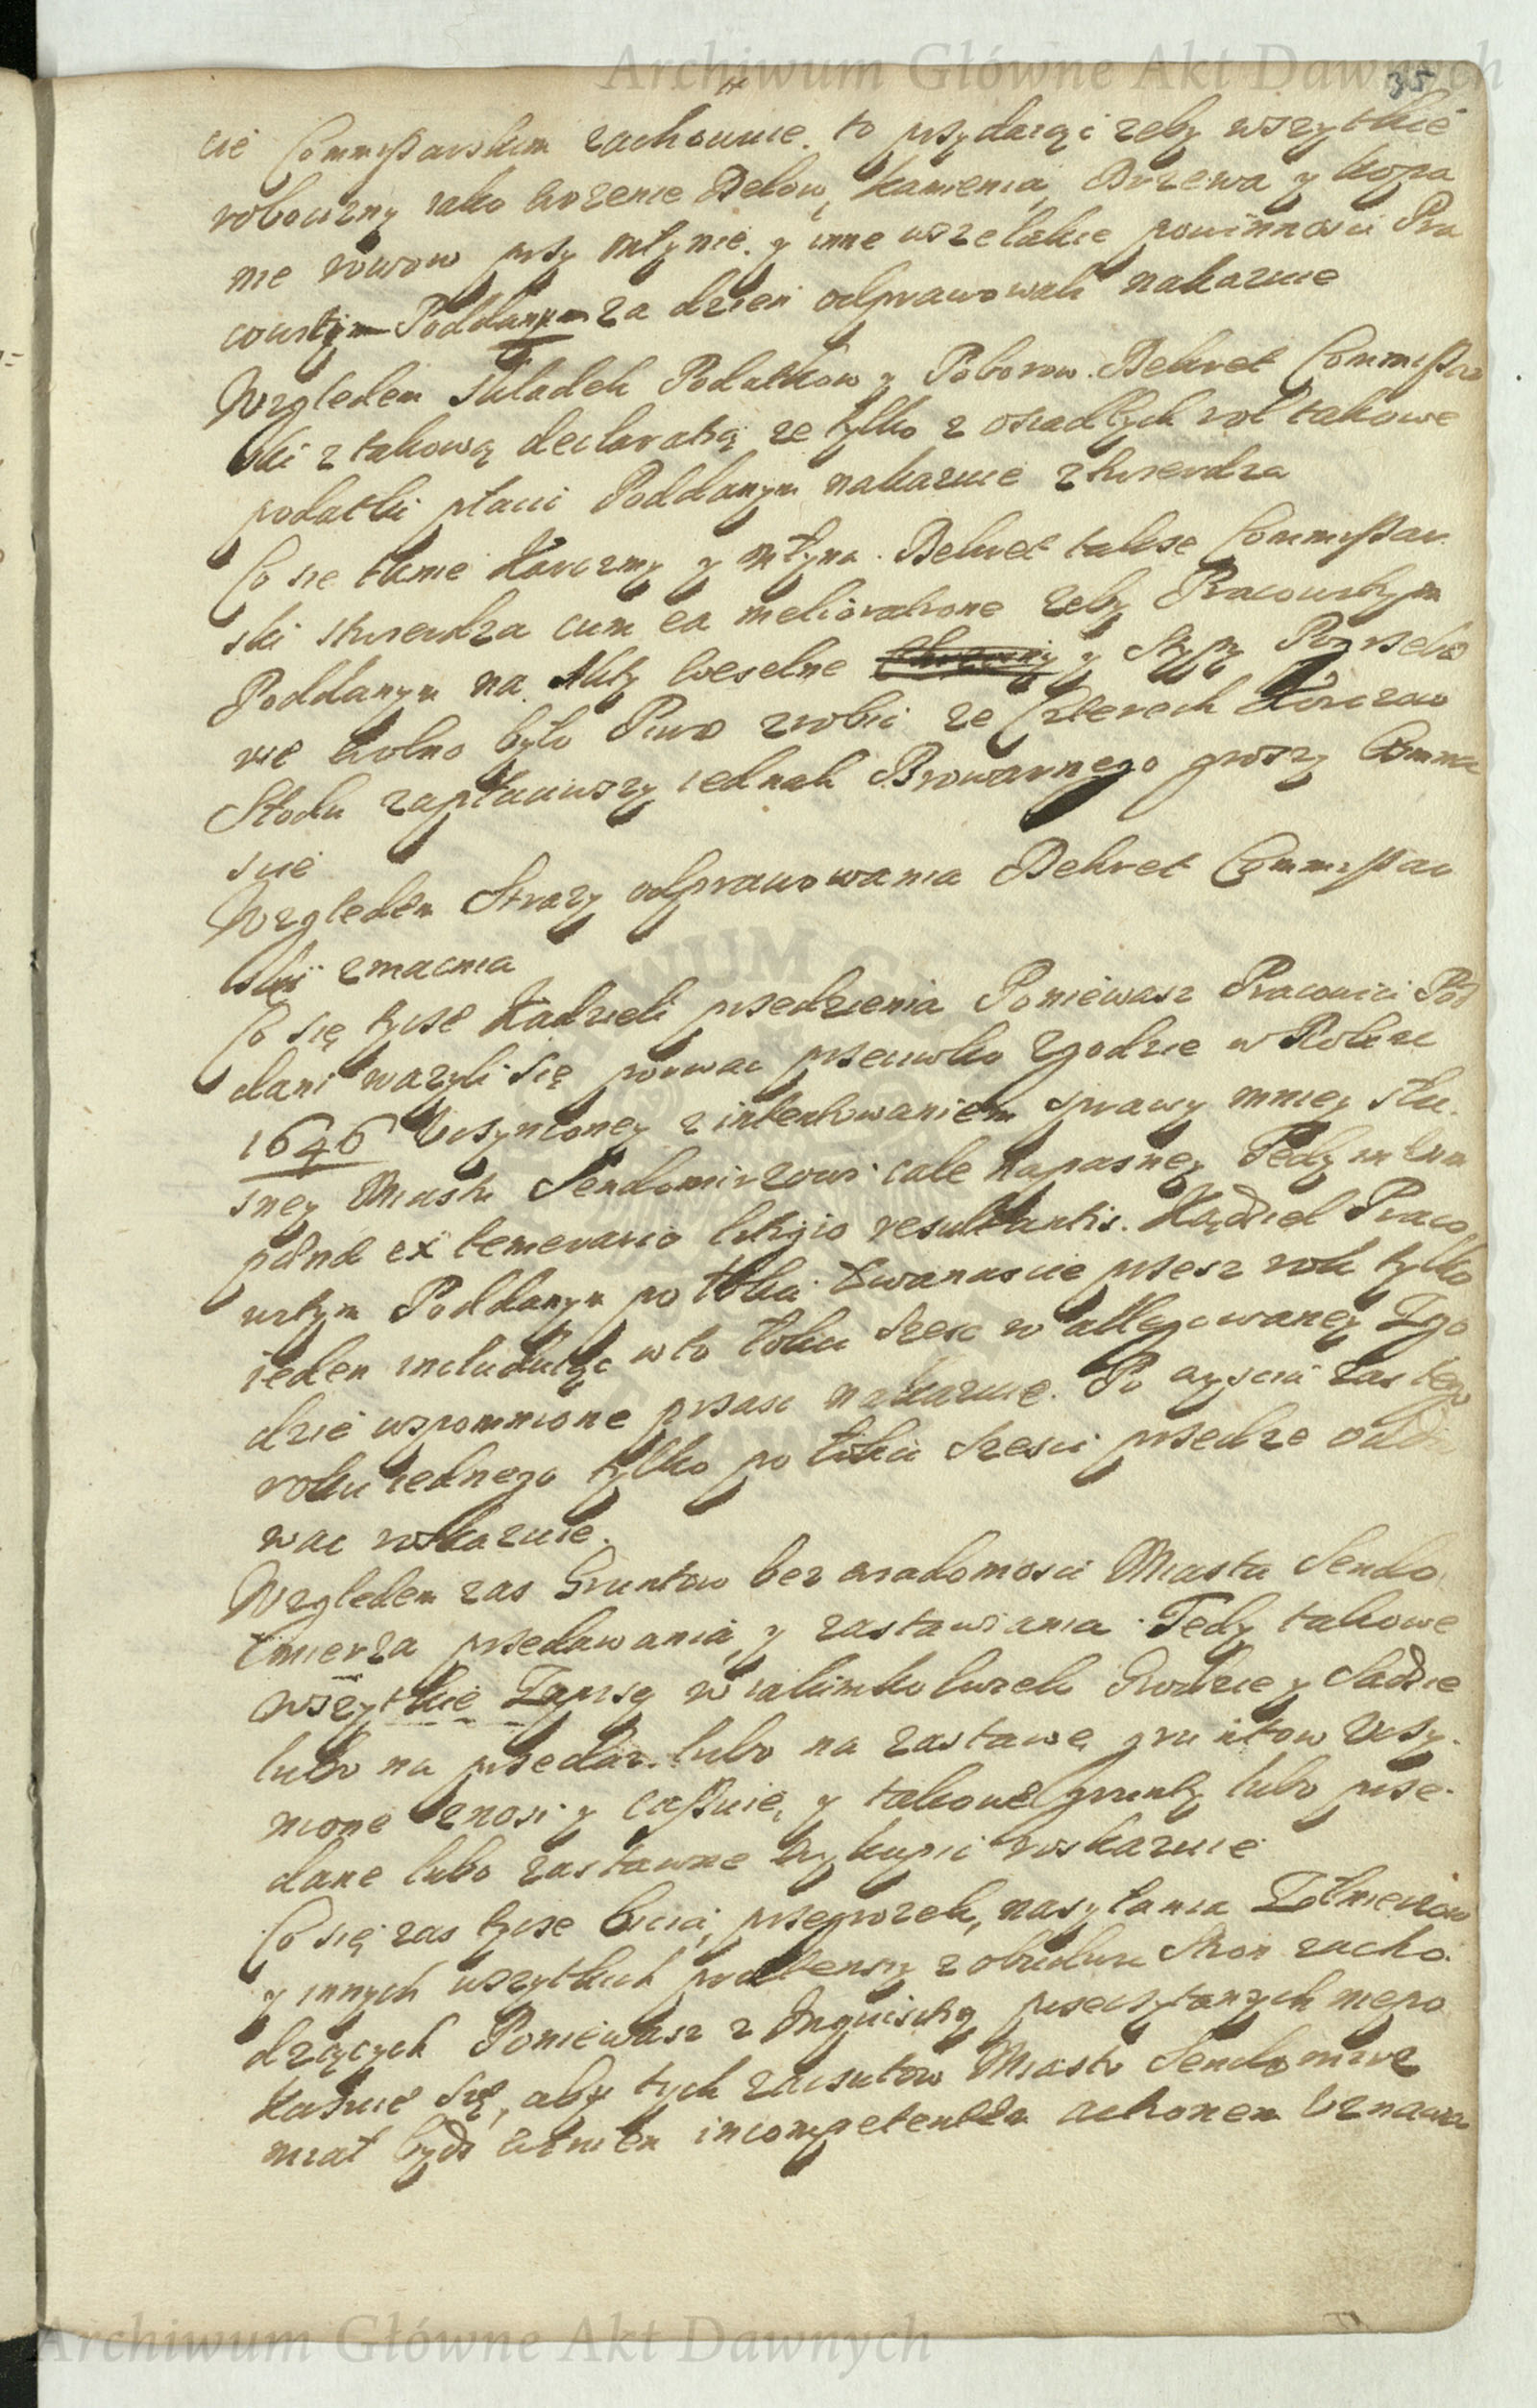 Archiwum Główne Akt Dawnych
35
cie Commissarskim zachowuie. to przydaiąc zeby wszytkie
robocizny iako wozenie Delow, kamienia, Drzewa y kopa
nie rowow przy młynie. y inne wszelakie powinnosci Pra
cowitym Poddanym za dzien odprawowali nakazuie
Względem składek Podatkow y Poborow. Dekret Commissar
ski z takową declaratią ze tylko z osiadłych rol takowe
podatki płacic Poddanym nakazuie ztwierdza
Co sie tknie Karczmy y młyna. Dekret takze Commissar
ski stwierdza cum ea melioratione zeby Pracowitym
Poddanym na Akty weselne y Stypy Pogrzebo
we wolno było Piwo zrobic ze Czterech Korcow
Słodu zapłaciwszy iednak Browarnego groszy
suie
Względem Strazy odprawowania Dekret Commissar
ski zmacnia
Co się tycze Kadzieli przedzenia Poniewasz Pracowici Pod
dani wazyli się pozwac przeciwko Zgodzie w Roku
1646 Uczynioney z intentowaniem sprawy mniey słu
szney Miastu Sendomirzowi cale napasney Tedy in
ex temerario litigio resultantis. Kądziel Praco
witym Poddanym po łokci Dwanascie przesz rok tylko
ieden includuiąc w to łokci szesc w allegowaney Zgo
dzie wspomnione przasc nakazuie. Po wysciu zas tego
roku iednego tylko po łokci szesci przedze odda
wac roskazuie.
Względem zas Gruntow bez wiadomosci Miasta Sendo
mierza przedawania, y zastawiania. Tedy takowe
wszytkie Zapisy w iakimkolwiek Grodzie y Sądzie
lubo na przedaz. lubo na zastawę gruntow Uczy
nione znosi y cassuie, y takowe grunty lubo prze
dane lubo zastawne wykupic roskazuie
Co się zas tycze bicia, przegrozek, nasyłania Zołnierzow
y innych wszytkich praetensy z obudwu Stron zacho
dzących Poniewasz z Inquisityi przeczytanych niepo
kazuie się, aby tych zarzutow Miasto Sendomirz
miał bydz winien incompetentem actionem uznawa
Archiwum Główne Akt Dawnych